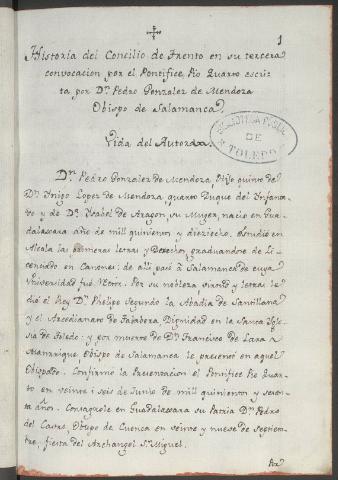 1
Historia del Concilio de Trento en su tercera
convocacion por el Pontifice Pio Quarto escri-
ta por Dn. Pedro Gonzalez de Mendoza
Obispo de Salamanca.
Vida del Autor
BIBLIOTECA
DE
TOLEDO
Dn. Pedro Gonzalez de Mendoza, Hijo quinto de
Dn. Yñigo Lopez de Mendoza, quarto Duque del Ynfanta-
vo y de Da. Ysabel de Aragon, su Muger, nacio en Gua-
dalaxara año de mil quinientos y dieziocho. Estudió en
Alcala las primeras letras y Derechos, graduandose de Li-
cenciado en Canones: de alli pasó à Salamanca de cuya
Universidad fué Retor. Por su nobleza, virtud y letras le
dió el Rey Dn. Phelipe Segundo la Abadia de Santillana
y el Arcedianato de Talabera Dignidad en la Santa Ygle-
sia de Toledo: y por muerte de Dn. Francisco de Lara y
Manrrique, Obispo de Salamanca le presentó en aquel
Obispado. Confirmó la Presentacion el Pontifice Pio Quar-
to en veinte i seis de Junio de mil quinientos y sesen-
ta años. Consagrole en Guadalaxara su Patria Dn. Pedro
del Castro, Obispo de Cuenca en veinte y nueve de Septiem-
bre, fiesta del Archangel Sn. Miguel.
Por